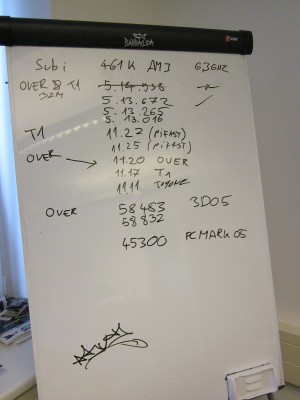 BARRACUDA
Subi 461K AM3 6.3GHZ
OVER 8 T1 5.14.938
32M 5.13.672
5.13.265
5.13.016
T1 11.27 (PiFAST)
11.25 (PiFAST)
OVER → 11.20 OVER
11.17 T1
11.11
OVER 58483 3D05
58832
45300 PCMARK 05